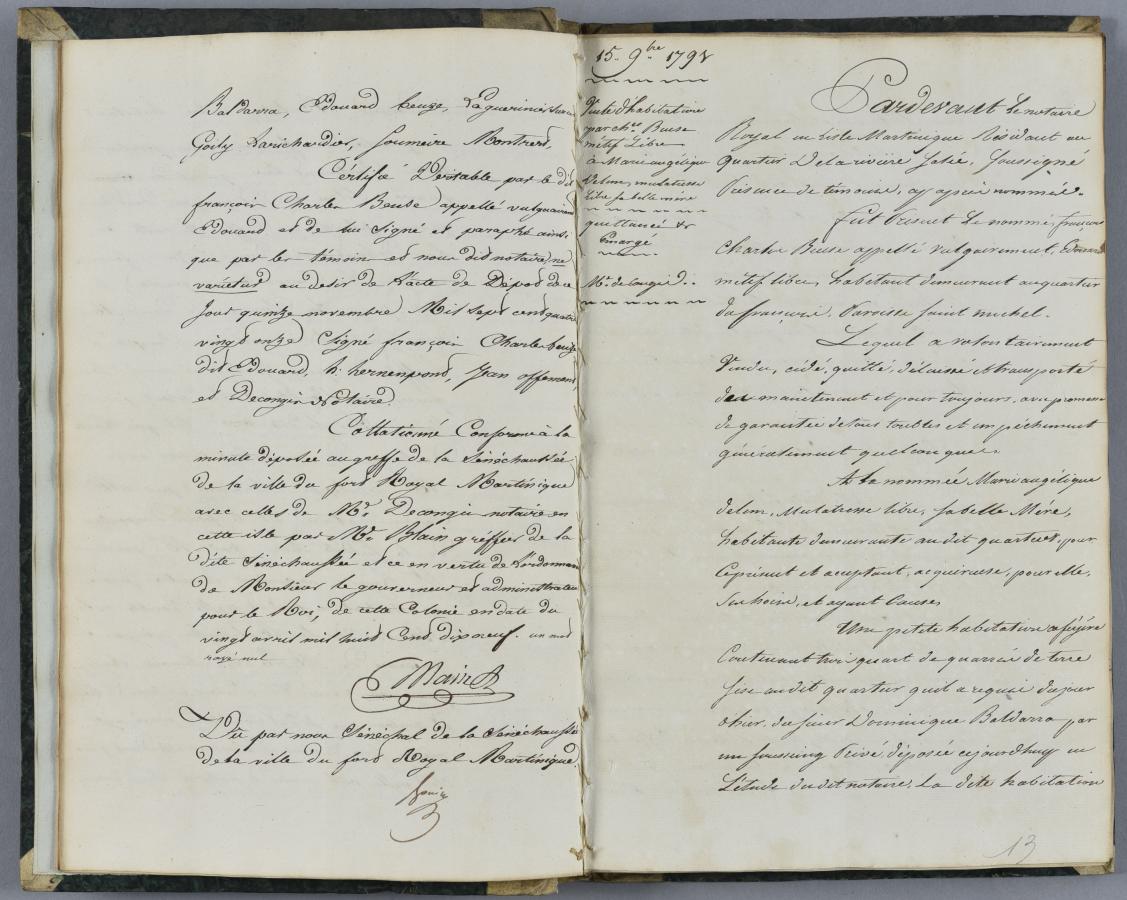 Baldarra, Edouard beuze, Laguerinier
Goily Larichardier, Soumaire Montrers,
Certifié Véritable par le dit
françois Charles Beuse appellé vulgairement
Edouard et de lui Signé et paraphé ainsi
que par les témoins et nous dit notaire, ne
varietur au desir de l'acte de Dépod de ce
Jour quinze novembre Mil Sept Cend quatre
vingd onze Signé françois Charles beuze
dit Edouard, h. hernenpond, Jean offemens
et Decongis Notaire.
Collationné Conforme à la
minute déposée au greffe de la Sénéchaussée
de la ville du ford Royal Martinique
avec celles de Mr. Decongis notaire en
cette isle par Mr. Blain greffier de la
dite Sénéchaussée et ce en vertu de l'ordonnance
de Monsieur le gouverneur et administrateur
pour le Roi, de cette Colonie en date du
vingd avril mil huid Cend dix neuf. un mot
rayé nul
Vu par nous Sénéchal de la Sénéchaussée
de la ville du ford Royal Martinique
15. 9.bre 1791
Vente d'habitation
par chs. Beuse
métif Libre
à Marie angélique
Delom, mulatresse
Libre sa belle mère
quittancé &
Emargé
Mr. decongis..
Pardevant le notaire
Royal en L'isle Martinique Résidant au
quartier De la rivière Salée, Soussigné
Présence de témoins, cy après nommés.
fut Présent Le nommé, françois
Charles Beuse appellé vulgairement, Edouard
métif libre, habitant demeurant au quartier
du françois, Paroisse Saint michel.
Lequel a volontairement
Vendu, cédé, quitté, délaissé et transporté
des maintenant et pour toujours, avec promesse
de garantie de tous troubles et empêchement
généralement quelconques.
A la nommée Marie angélique
delom, Mulatresse libre, sa belle Mère,
habitante demeurante au dit quartier, pour
Ce présent et aceptant, acquireuse, pour elle,
Ses hoirs, et ayant Causes
Une petite habitation
Contenant trois quart de quarrés de terre
Sise au dit quartier qu'il a aquise du jour
d'hier, du Sieur Dominique Baldarra par
un Sousseing Privé, déposée cejourdhuy en
L'étude du dit notaire. La dite habitation
13